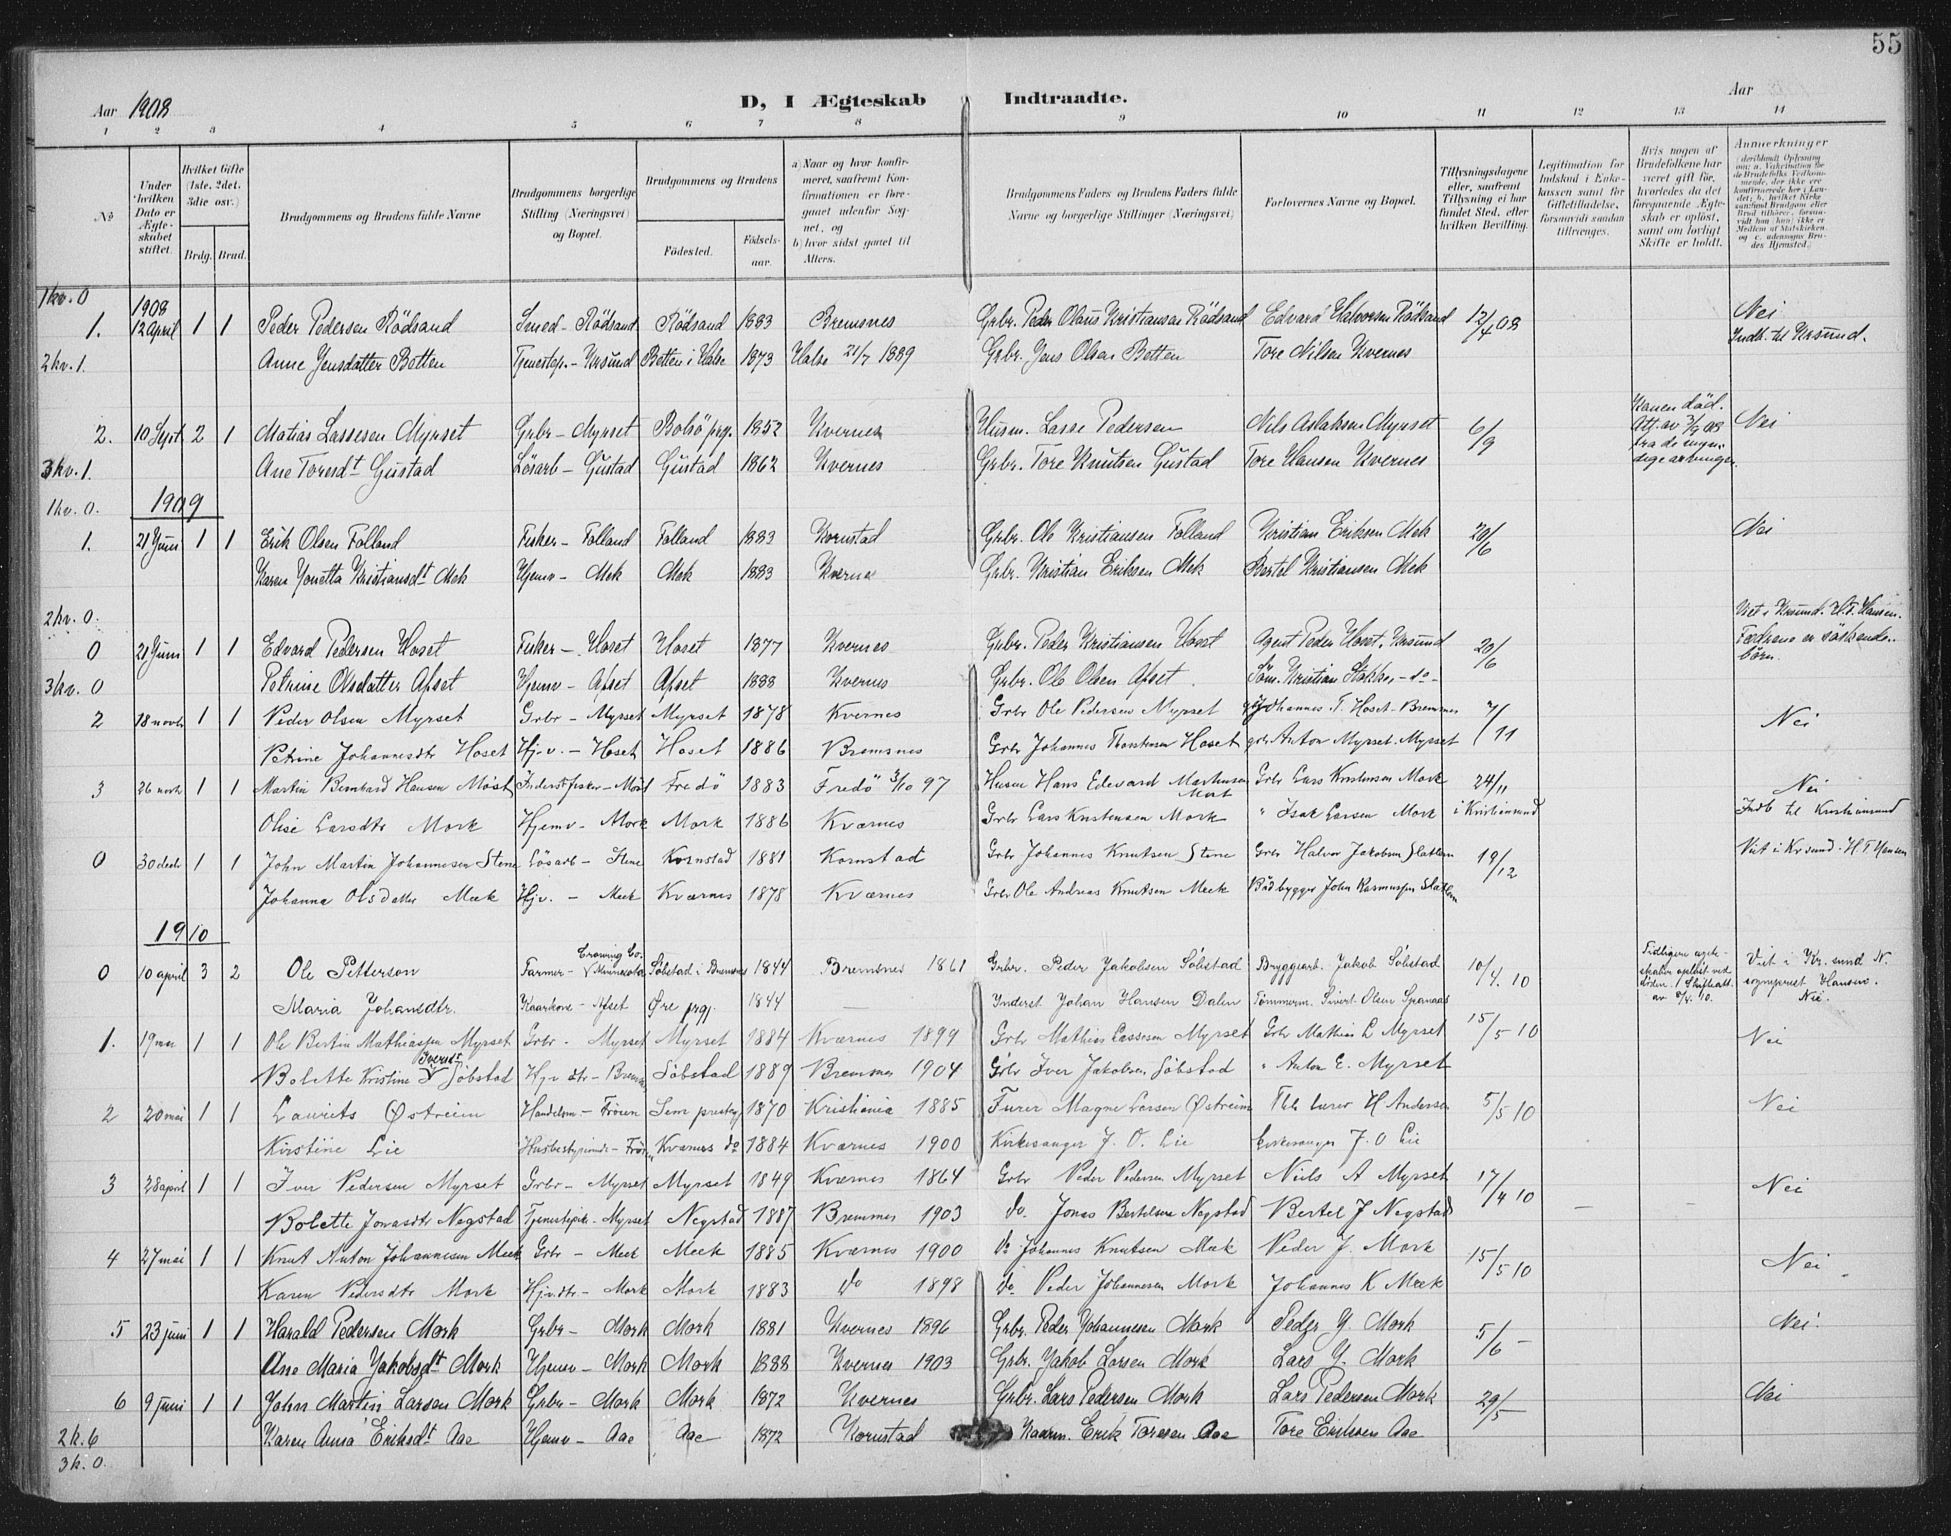 55
Aar 1908
D, I Ægteskab Indtraadte.
Aar
1 2 3 4 5 6 7 8 9 10 11 12 13 14
No
Under hvilken Dato er Ægteskabet stiftet.
Hvilket Gifte (1ste, 2det, 3die osv.)
Brdg. Brud.
Brudgommens og Brudens fulde Navne
Brudgommens borgerlige Stilling (Næringsvei) og Bopæl.
Brudgommens og Brudens
Fødested. Fødselsaar.
a) Naar og hvor konfirmeret, saafremt Konfirmationen er foregaaet udenfor Sognet, og
b) hvor sidst gaaet til Alters.
Brudgommens Faders og Brudens Faders fulde Navne og borgerlige Stillinger (Næringsvei)
Forlovernes Navne og Bopæl.
Tillysningsdagene eller, saafremt Tillysning ei har fundet Sted, efter hvilken Bevilling.
Legitimation for Indskud i Enkekassen samt for Giftetilladelse, forsaavidt saadan tiltrænges.
Hvis nogen af Brudefolkene har været gift før, hvorledes da det foregaaende Ægteskab er opløst, samt om lovligt Skifte er holdt.
Anmærkninger
1 kv. 0
1908
1. 12 April 1 1 Peder Pedersen Rödsand Smed - Rödsand Rödsand 1883 Bremsnes Grbr. Peder Olaus Kristiansen Rödsand Edvard Halvorsen Rödsand 12/4 08 Nei
Indb. til Krsund.
2 kv. 1. Anne Jensdatter Betten Tjenestep. - Krsund Betten i Halse 1873 Halse 21/7 1889 Grbr. Jens Olsen Betten Tore Nilsen Kvernes
2. 10 Sept 2 1 Matias Lassesen Myrset Grbr - Myrset Bolsö prg. 1852 Kvernes Husm. Lasse Pedersen Nils Aslaksen Myrset 6/9 Konen död. Att. av 3/9 08 fra de myndige arvinger. Nei
3 kv. 1. Ane Toresdt Gustad Lösarb - Gustad Gustad 1862 Kvernes Grbr. Tore Knutsen Gustad Tore Hansen Kvernes
1 kv. 0. 1909
1. 21 Juni 1 1 Erik Olsen Folland Fisker - Folland Folland 1883 Kornstad Grbr. Ole Kristiansen Folland Kristian Eriksen Mek 20/6 Nei
Karen Jonetta Kristiansdt Mek Hjemv - Mek Mek 1883 Kvernes Grbr. Kristian Eriksen Mek Bertel Kristiansen Mek
2 kv. 0.
0 21 Juni 1 1 Edvard Pedersen Hoset Fisker - Hoset Hoset 1877 Kvernes Grbr. Peder Kristiansen Hoset Agent Peder Hoset, Krsund 20/6 Viet i Krsund. H.T. Hansen. Fædrene er söskendebörn.
3 kv. 0 Petrine Olsdatter Apset Hjemv - Apset Apset 1888 Kvernes Grbr. Ole Olsen Apset Kristian - do -
2 18 novbr 1 1 Peder Olsen Myrset Grbr - Myrset Myrset 1878 Kvernes Grbr Ole Pedersen Myrset Johannes T. Hoset. Bremsnes 7/11 Nei
Petrine Johannesdtr Hoset Hjv. - Hoset Hoset 1886 Bremsnes Grbr Johannes Thorstensen Hoset grbr Anton Myrset. Myrset
3 26 novb 1 1 Martin Bernhard Hansen Möst Inderst fisker - Möst Fredö 1883 Fredö 3/10 97 Husm Hans Edevard Martinsen Möst Grbr Lars Kristensen Mork 24/11 i Kristiansund Nei
Indb til Kristiansund
Olise Larsdtr Mork Hjemv - Mork Mork 1886 Kværnes Grbr Lars Kristensen Mork " Isak Larsen Mork
0 30 decb 1 1 John Martin Johannesen Stene Lösarb - Stene Kornstad 1881 Kornstad Grbr Johannes Knutsen Stene Grbr Halvor Jakobsen Slatlem 19/12 Viet i Kr sund. H.T. Hansen
Johanna Olsdatter Meek Hjv. - Meek Kværnes 1878 Kværnes Grbr Ole Andreas Knutsen Meek Båd bygger John Rasmussen Slatlem
1910
0 10 april 3 2 Ole Petterson Farmer - Minnesota Söbstad i Bremsnes 1844 Bremsnes 1861 Grbr. Peder Jakobsen Söbstad Bryggearb. Jakob Söbstad 10/4. 10 Tidligere ægteskaber opløst ved döden. Skifteatt. av 9/4. 10. Viet i Kr. sund N. sognepræst Hansen. Nei.
Maria Johansdtr. Kaarkone - Apset Øre prgj. 1844 — Inderst Johan Hansen Dalen Tömmerm. Sivert Olsen
1. 19 mai 1 1 Ole Bertin Mathiassen Myrset Grbr - Myrset Myrset 1884 Kværnes 1899 Grbr Mathias Lassesen Myrset Grbr Mathias L Myrset 15/5 10 Nei
Bolette Kristine Iversdt Söbstad Hjv dtr - Bremsn Söbstad 1889 Bremsnes 1904 Grbr Iver Jakobsen Söbstad " Anton E. Myrset
2 20 mai 1 1 Laurits Østreim Handelsm - Fröien Sem prestgj 1870 Kristiania 1885 Furer Magne Larsen Østreim H Andersen 5/5 10 Nei
Kirstine Lie Husbestyrinde - Kværnes do 1884 Kværnes 1900 Kirkesanger J. O. Lie kirkesanger J. O Lie
3 28 april 1 1 Iver Pedersen Myrset Grbr - Myrset Myrset 1849 Kværnes 1864 Grbr Peder Pedersen Myrset Niels A Myrset 17/4 10 — — Nei
Bolette Jonasdtr Negstad Tjenestepike - Myrset Negstad 1887 Bremsnes 1903 do. Jonas Bertelsen Negstad Bertel J Negstad
4 27 mai 1 1 Knut Anton Johannesen Meek Grbr - Meek Meek 1885 Kværnes 1900 do Johannes Knutsen Meek Peder J. Mork 15/5 10 Nei
Karen Pedersdtr Mork Hjv.dtr - Mork Mork 1883 do 1898 do. Peder Johannesen Mork Johannes K Meek
5 23 juni 1 1 Harald Pedersen Mork Grbr - Mork Mork 1881 Kvernes 1896 Grbr. Peder Johannesen Mork Peder J. Mork 5/6 — Nei.
Ane Maria Jakobsdt Mork Hjemv - Mork Mork 1888 Kvernes 1903 Grbr. Jakob Larsen Mork Lars J. Mork
6 9 juni 1 1 John Martin Larsen Mork Grbr - Mork Mork 1872 Kvernes Grbr. Lars Pedersen Mork Lars Pedersen Mork 29/5 Nei
2 k. 6 Karen Anna Eriksdt Aae Hjemv - Aae Aae 1872 Kornstad Kaarm. Erik Toresen Aae Tore Eriksen Aae
3 k. 0.